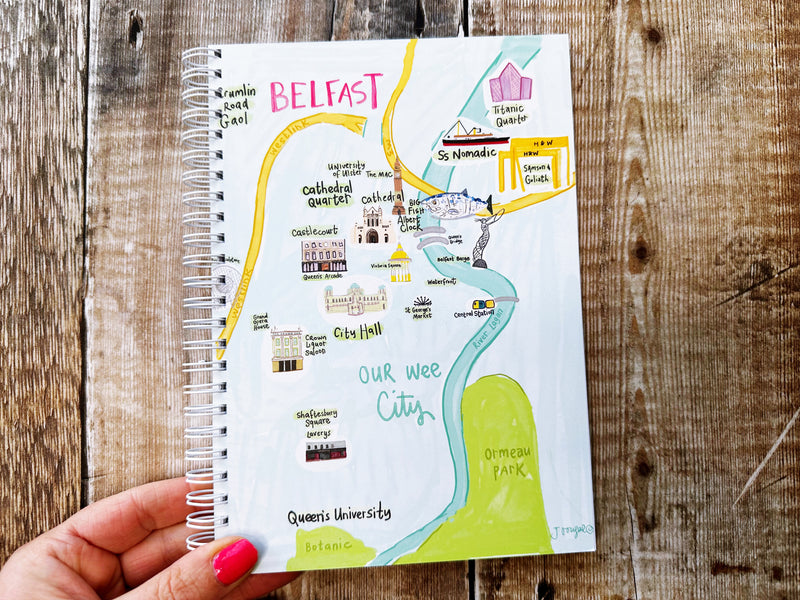 BELFAST
Road
Gaol
Westlink
M3
Titanic
Quarter
Ss Nomadic
H&W
H&W
Samson &
Goliath
University
of Ulster
The MAC
Cathedral
Quarter
Cathedral
Big
Fish
Albert
Clock
Queen's
Bridge
Castlecourt
Queen's Arcade
Victoria Square
Belfast Barge
Waterfront
Westlink
City Hall
St George's
Market
Central Station
River Lagan
Grand
Opera
House
Crown
Liquor
Saloon
Our wee
City
Shaftesbury
Square
Laverys
Ormeau
Park
Queen's University
Botanic